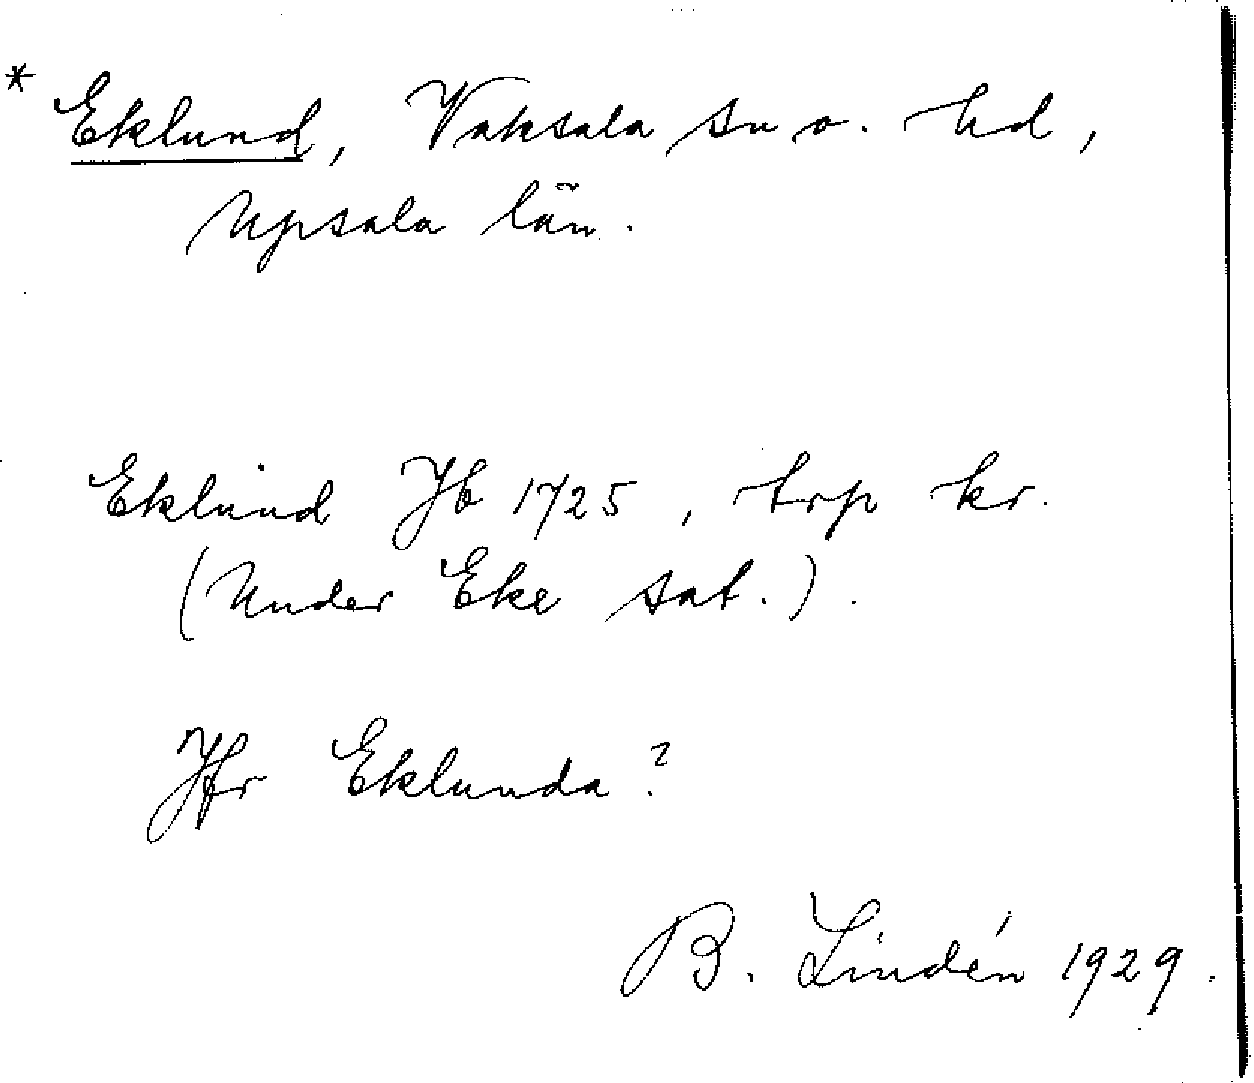 * Eklund, Vaksala sn o. hd,
Upsala län.
Eklund Jb 1725, trp kr.
(Under Eke sat.).
Jfr Eklunda?
B. Lindén 1929.